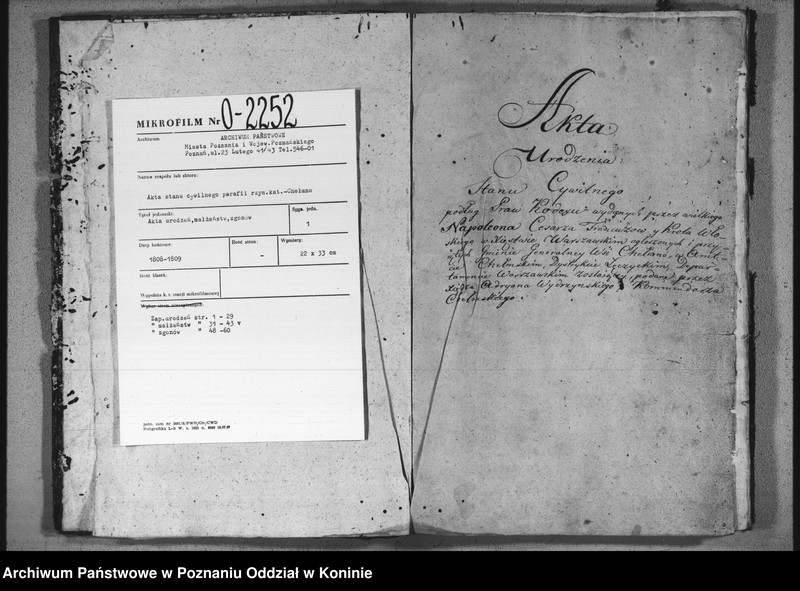 MIKROFILM Nr O-2252
Archiwum
ARCHIWUM PAŃSTWOWE
Miasta Poznania i Wojew.Poznańskiego
Poznań,ul.23 Lutego 41/43 Tel.546-01
Nazwa zespołu lub zbioru:
Akta stanu cywilnego parafii rzym.kat.-Chełmno
Tytuł jednostki:
Akta urodzeń,małżeństw,zgonów
Sygn. jedn.
1
Daty końcowe:
1808-1809
Ilość stron:
-
Wymiary:
22 x 33 cm
Ilość klatek:
Zap.urodzeń str. 1 - 29
" małżeństw " 31 - 43 v
" zgonów " 48 -60
Akta
Urodzenia
Stanu Cywilnego
podług Praw Kodexu wydanych przez wielkiego
Napoleona Cesarza Francuzow y Krola Wło-
skiego w Xięstwie Warszawskim ogłoszonych i przy-
iętych Gminie Generalney Wsi
Dystrykcie Łęczyckim, Depar-
tamencie Warszawskim
Xiędza Adryana Kommendarza
Archiwum Państwowe w Poznaniu Oddział w Koninie